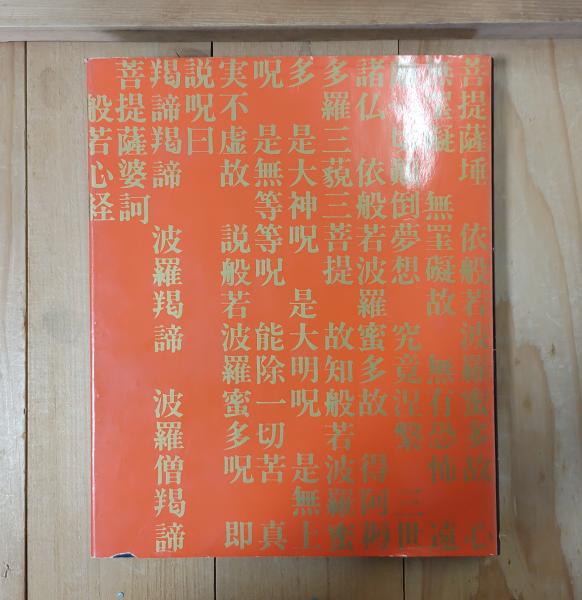 菩提薩埵　依般若波羅蜜多故　心
無罣礙　無罣礙故　無有恐怖　遠
切顛倒夢想　究竟涅槃　三世
諸仏　依般若波羅蜜多故　得阿耨
多羅三藐三菩提　故知般若波羅蜜
多　是大神呪　是大明呪　是無上
呪　是無等等呪　能除一切苦　真
実不虚故　説般若波羅蜜多呪　即
説呪曰
羯諦羯諦　波羅羯諦　波羅僧羯諦
菩提薩婆訶
般若心経